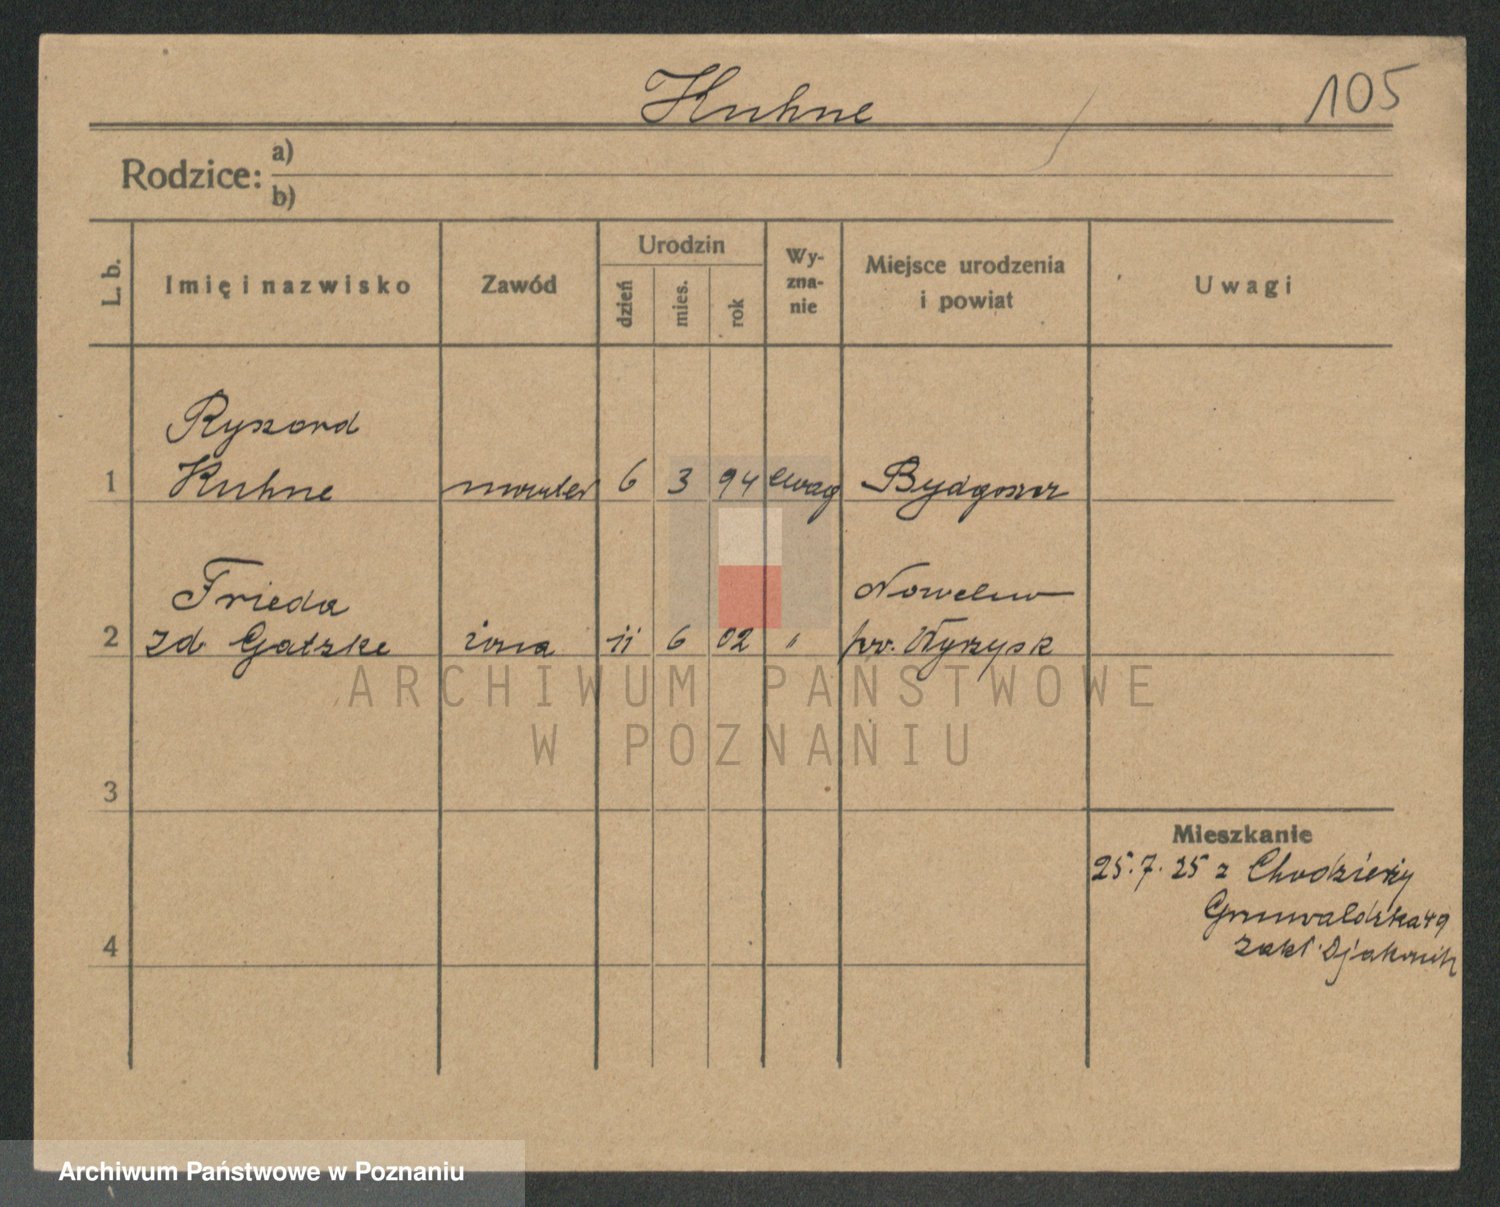 Kuhne
105
Rodzice: a)
b)
L. b.
Imię i nazwisko
Zawód
Urodzin
dzień
mies.
rok
Wy-
zna-
nie
Miejsce urodzenia
i powiat
Uwagi
Ryszard
1 Kuhne 6 3 94 ewag Bydgoszcz
Frieda
2 zd. Gatzke żona 11 6 02 " pw. Wyrzysk
ARCHIWUM PAŃSTWOWE
W POZNANIU
3
Mieszkanie
25.7.25 z Chodzieży
Grunwaldzka 49
4
Archiwum Państwowe w Poznaniu